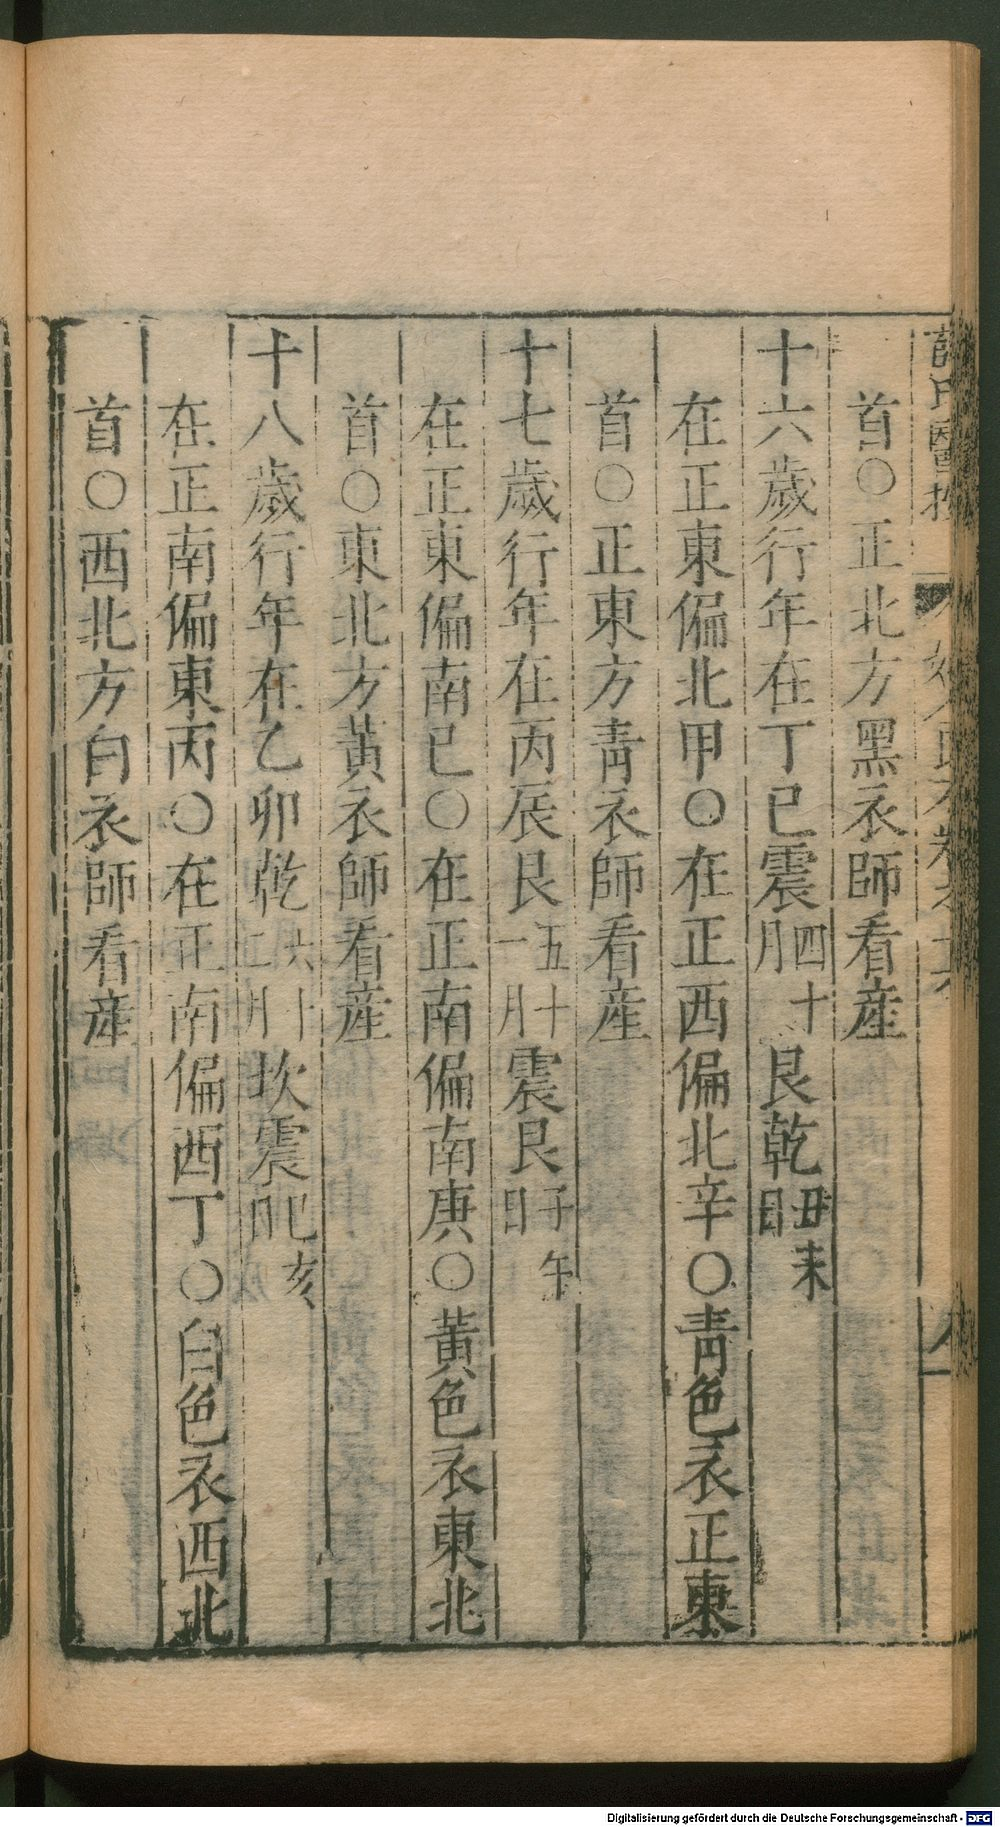 首〇正北方黑衣師看産
十六歲行年在丁巳震四十月艮乾丑未日
在正東偏北甲〇在正西偏北辛〇青色衣正東
首〇正東方青衣師看産
十七歲行年在丙辰艮五十一月震艮子午日
在正東偏南乙〇在正南偏南庚〇黃色衣東北
首〇東北方黃衣師看産
十八歲行年在乙卯乾六十二月坎震巳亥日
在正南偏東丙〇在正南偏西丁〇白色衣西北
首〇西北方白衣師看産
Digitalisierung gefördert durch die Deutsche Forschungsgemeinschaft - DFG